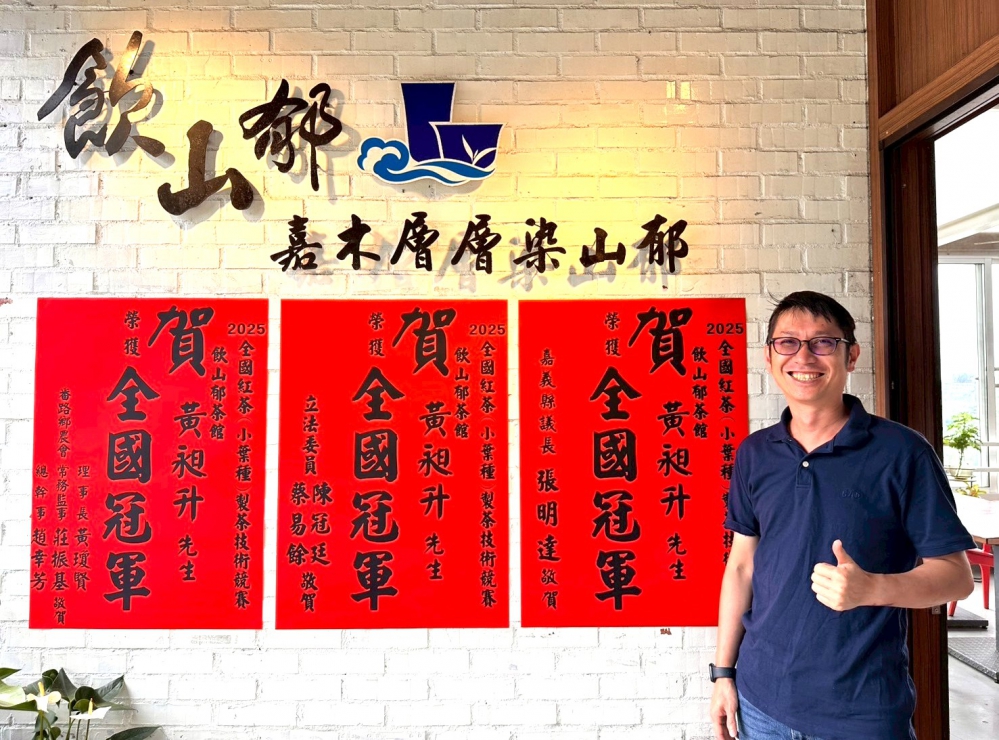 飲山郁
嘉木層層染山郁
2025
全國紅茶 小葉種 製茶技術競賽
飲山郁茶館
賀
黃昶升 先生
榮獲
全國冠軍
番路鄉農會
理事長 黃瓊賢
常務監事 莊振基 敬賀
總幹事 趙幸芳
2025
全國紅茶 小葉種 製茶技術競賽
飲山郁茶館
賀
黃昶升 先生
榮獲
全國冠軍
立法委員 陳冠廷
蔡易餘 敬賀
2025
全國紅茶 小葉種 製茶技術
飲山郁茶館
賀
黃昶升 先生
榮獲
全國冠軍
嘉義縣議長 張明達 敬賀